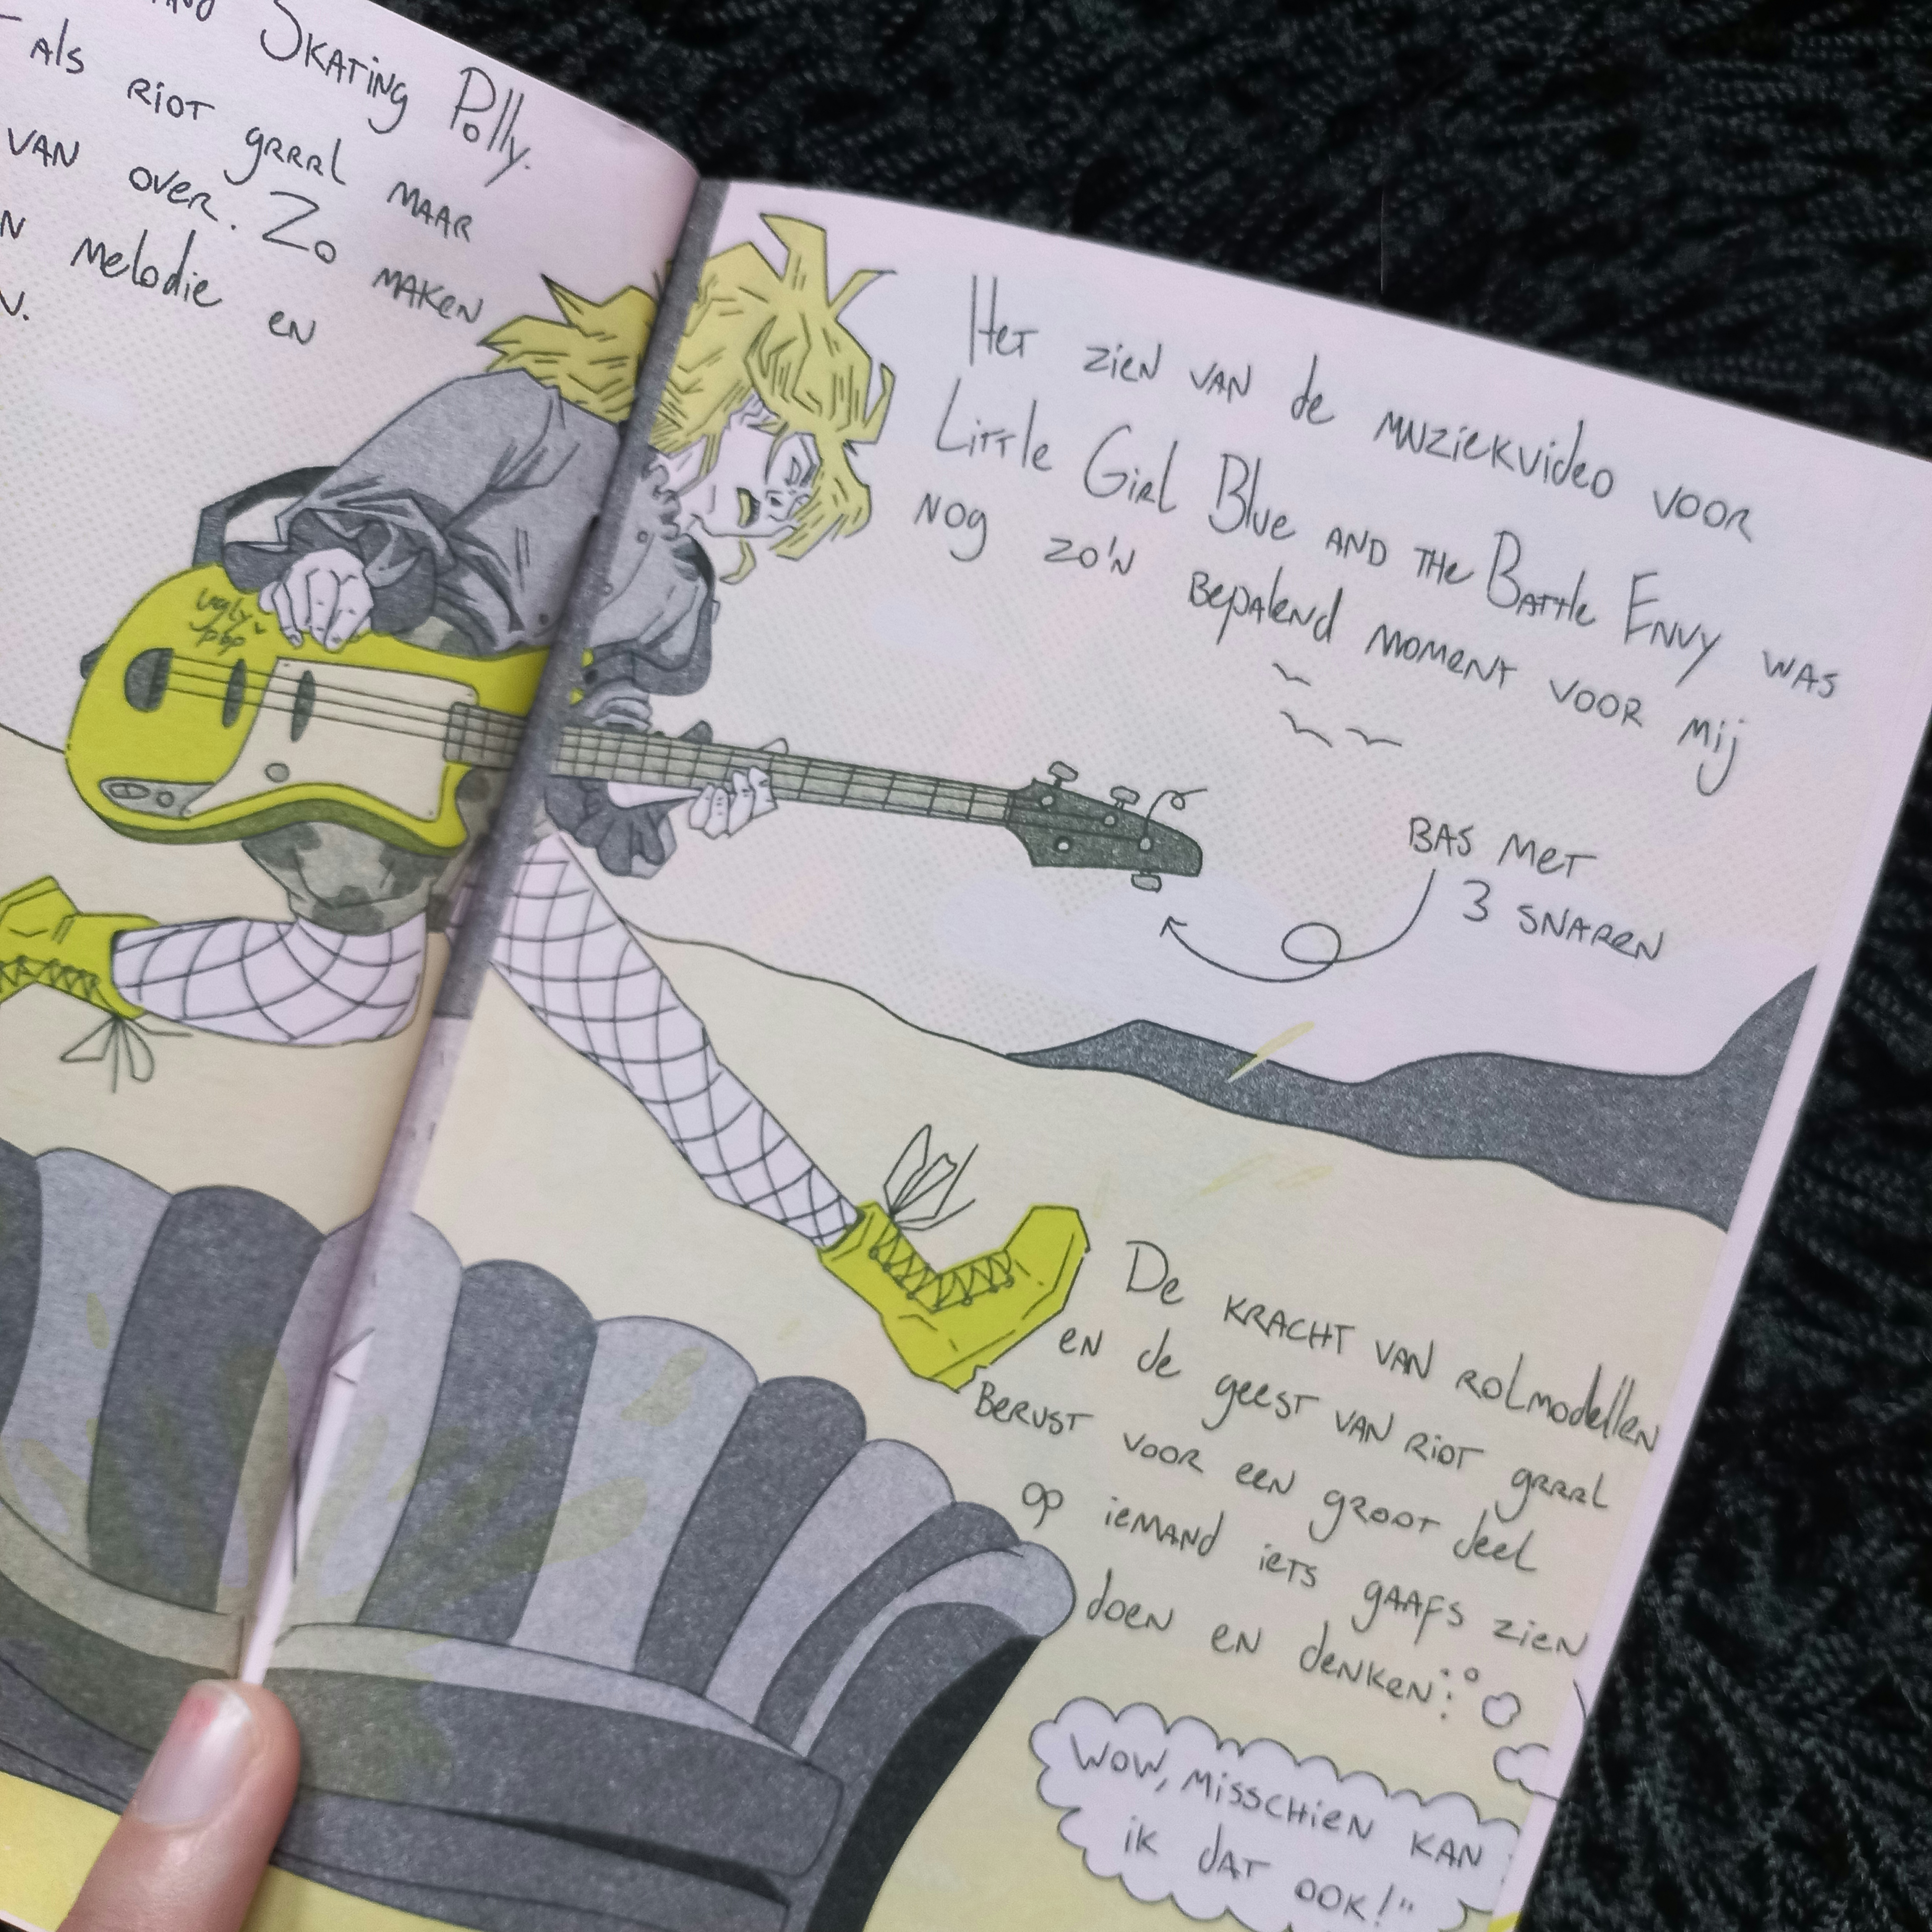 Skating Polly.
als riot grrrl maar
van over. Zo maken
melodie en
ugly pop
Het zien van de muziekvideo voor
Little Girl Blue and the Battle Envy was
nog zo'n bepalend moment voor mij
bas met
3 snaren
De kracht van rolmodellen
en de geest van riot grrrl
berust voor een groot deel
op iemand iets gaafs zien
doen en denken:
wow, misschien kan
ik dat ook!"